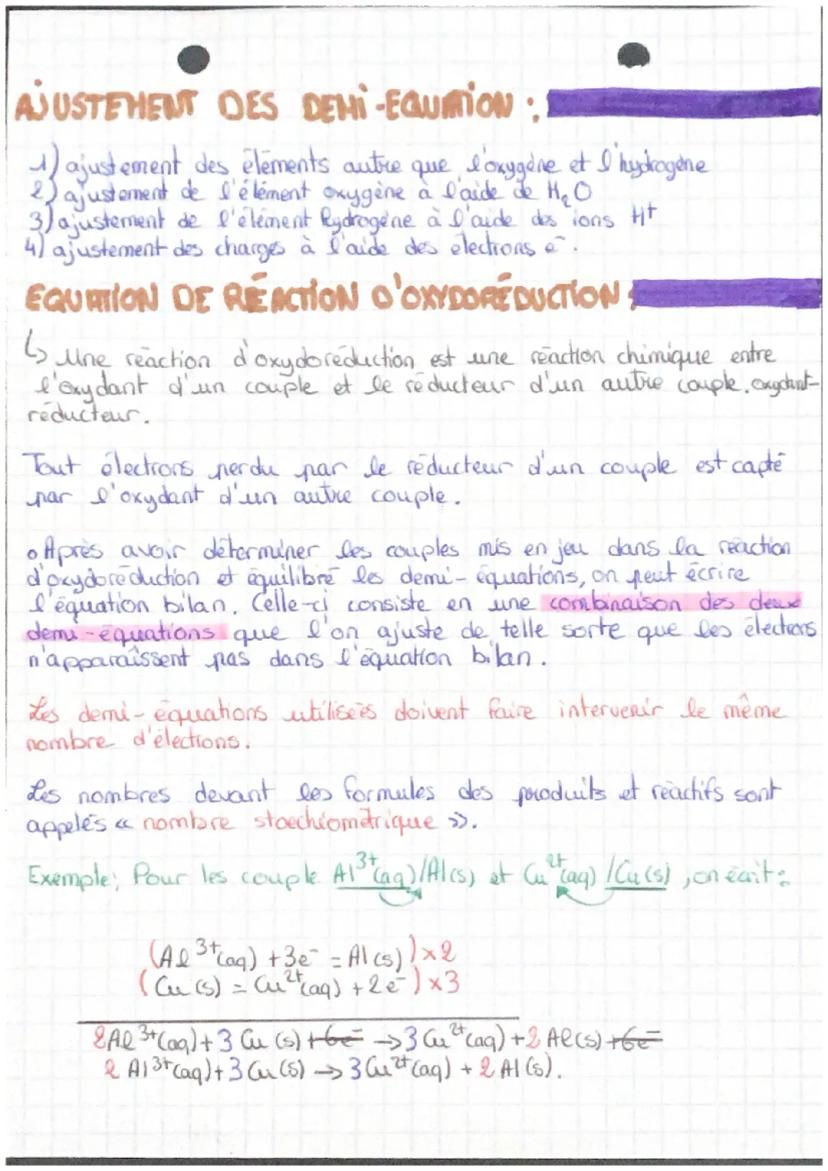 AJUSTEMENT DES DEMI-EQUATION :
1) ajustement des éléments autre que l'oxygène et l'hydrogène
2) ajustement de l'élément oxygène à l'aide de H₂O
3) ajustement de l'élément hydrogène à l'aide des ions H⁺
4) ajustement des charges à l'aide des électrons e⁻.
EQUATION DE RÉACTION D'OXYDORÉDUCTION :
↳ Une réaction d'oxydoréduction est une réaction chimique entre
l'oxydant d'un couple et le réducteur d'un autre couple. oxydant-
réducteur.
Tout électrons perdu par le réducteur d'un couple est capté
par l'oxydant d'un autre couple.
o Après avoir déterminer les couples mis en jeu dans la réaction
d'oxydoréduction et équilibré les demi-équations, on peut écrire
l'équation bilan. Celle-ci consiste en une combinaison des deux
demi-équations que l'on ajuste de telle sorte que les électrons
n'apparaissent pas dans l'équation bilan.
Les demi-équations utilisées doivent faire intervenir le même
nombre d'électrons.
Les nombres devant les formules des produits et réactifs sont
appelés « nombre stoechiométrique ».
Exemple; Pour les couple Al³⁺(aq)/Al(s) et Cu²⁺(aq)/Cu(s), on écrit :
(Al³⁺(aq) + 3e⁻ = Al(s)) ×2
(Cu(s) = Cu²⁺(aq) + 2e⁻) ×3
2Al³⁺(aq) + 3 Cu (s) +6e⁻ → 3 Cu²⁺(aq) + 2 Al(s) +6e⁻
2 Al³⁺(aq) + 3 Cu(s) → 3 Cu²⁺(aq) + 2 Al(s).